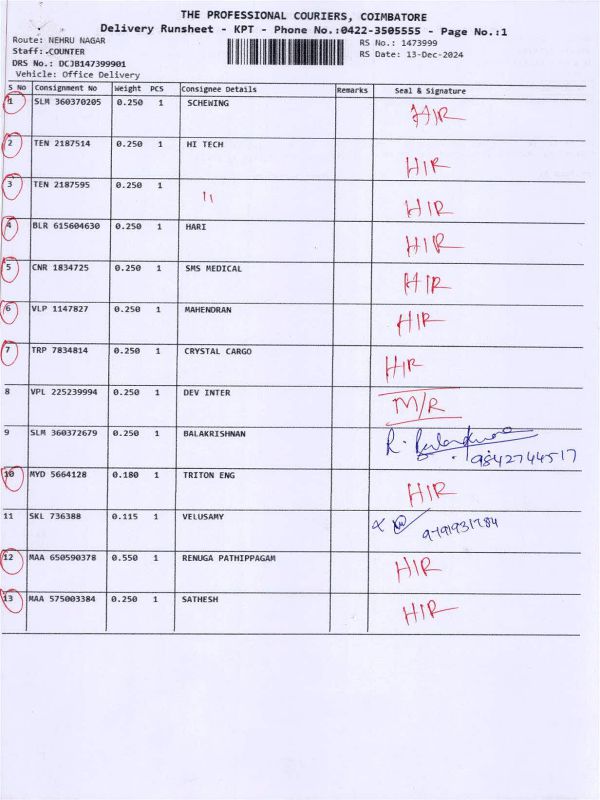 THE PROFESSIONAL COURIERS, COIMBATORE
Delivery Runsheet - KPT - Phone No.:0422-3505555 - Page No.:1
Route: NEHRU NAGAR RS No.: 1473999
Staff: COUNTER RS Date: 13-Dec-2024
DRS No.: DCJB147399901
Vehicle: Office Delivery
S No Consignment No Weight PCS Consignee Details Remarks Seal & Signature
1 SLM 360370205 0.250 1 SCHEWING HIR
2 TEN 2187514 0.250 1 HI TECH HIR
3 TEN 2187595 0.250 1 11 HIR
4 BLR 615604630 0.250 1 HARI HIR
5 CNR 1834725 0.250 1 SMS MEDICAL HIR
6 VLP 1147827 0.250 1 MAHENDRAN HIR
7 TRP 7834814 0.250 1 CRYSTAL CARGO HIR
8 VPL 225239994 0.250 1 DEV INTER M/R
9 SLM 360372679 0.250 1 BALAKRISHNAN R.
9842744517
10 MYD 5664128 0.180 1 TRITON ENG HIR
11 SKL 736388 0.115 1 VELUSAMY
12 MAA 650590378 0.550 1 RENUGA PATHIPPAGAM HIR
13 MAA 575003384 0.250 1 SATHESH HIR